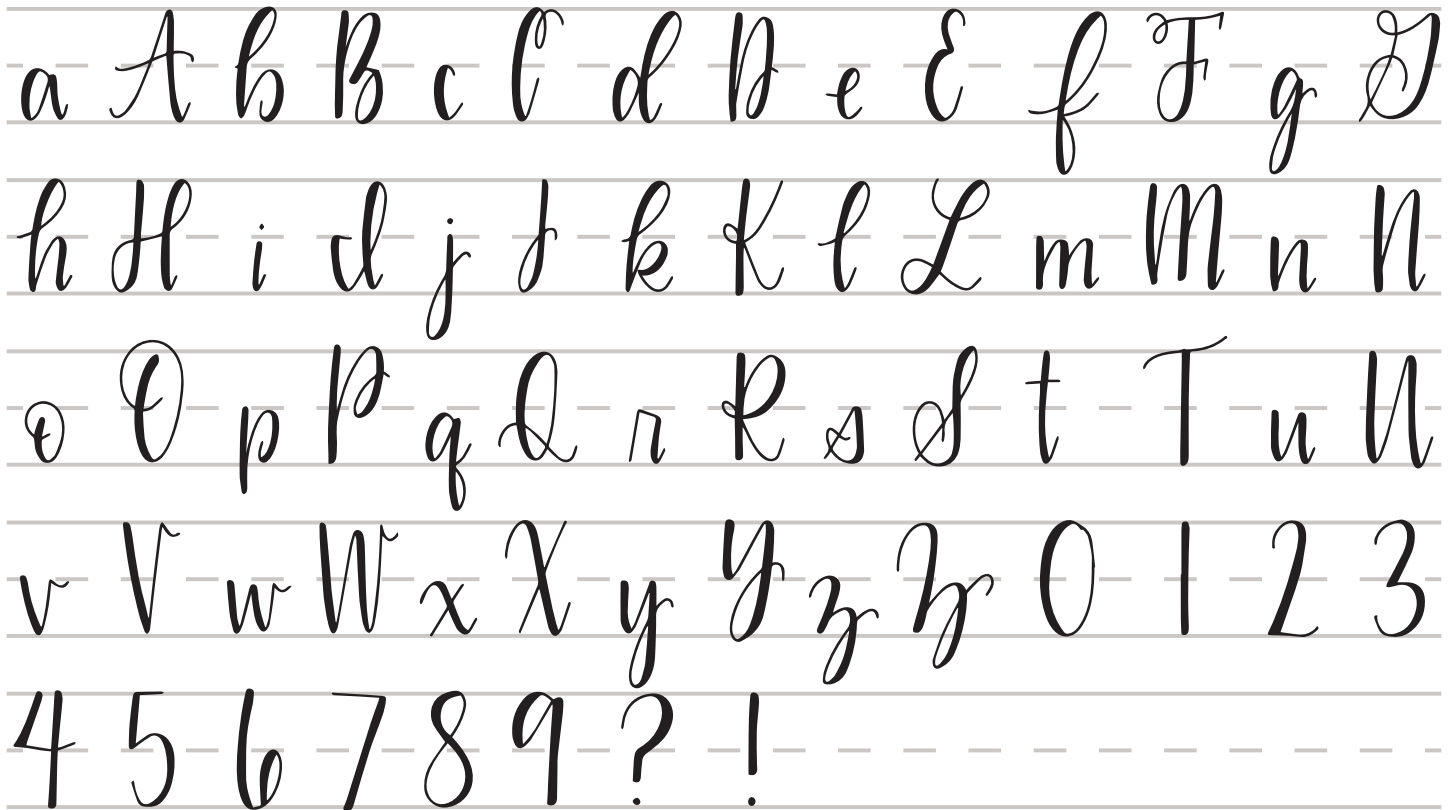 a A b B c C d D e E f F g G
h H i I j J k K l L m M n N
o O p P q Q r R s S t T u U
v V w W x X y Y z Z 0 1 2 3
4 5 6 7 8 9 ? !